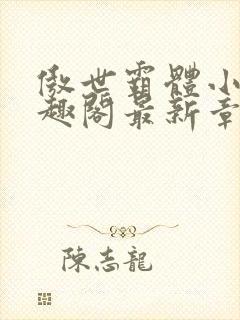 傲世霸體小
趣閣最新章
陳志龍